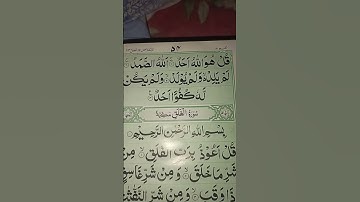 ٥٤
قُلْ هُوَ اللّٰهُ اَحَدٌ ۚ اَللّٰهُ الصَّمَدُ ۚ
لَمْ يَلِدْ ۙ وَلَمْ يُوْلَدْ ۙ وَلَمْ يَكُنْ
لَّهٗ كُفُوًا اَحَدٌ
سُوْرَةُ الْفَلَقِ
بِسْمِ اللّٰهِ الرَّحْمٰنِ الرَّحِيْمِ
قُلْ اَعُوْذُ بِرَبِّ الْفَلَقِ ۙ مِنْ
شَرِّ مَا خَلَقَ ۙ وَمِنْ شَرِّ غَاسِقٍ
اِذَا وَقَبَ ۙ وَمِنْ شَرِّ النَّفّٰثٰتِ